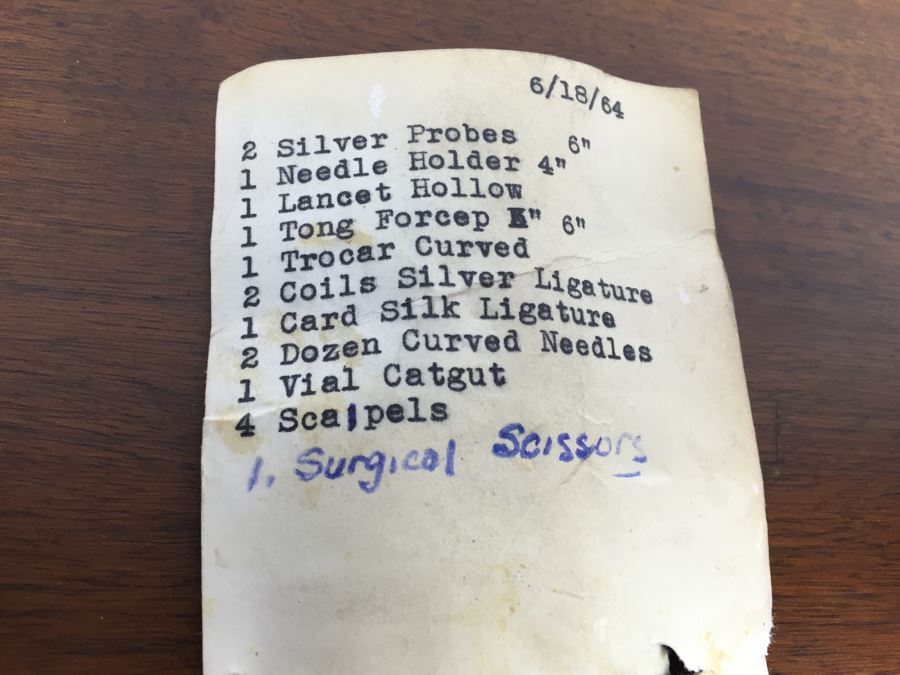 6/18/64
2 Silver Probes 6"
1 Needle Holder 4"
1 Lancet Hollow
1 Tong Forcep " 6"
1 Trocar Curved
2 Coils Silver Ligature
1 Card Silk Ligature
2 Dozen Curved Needles
1 Vial Catgut
4 Scalpels
1. Surgical Scissors